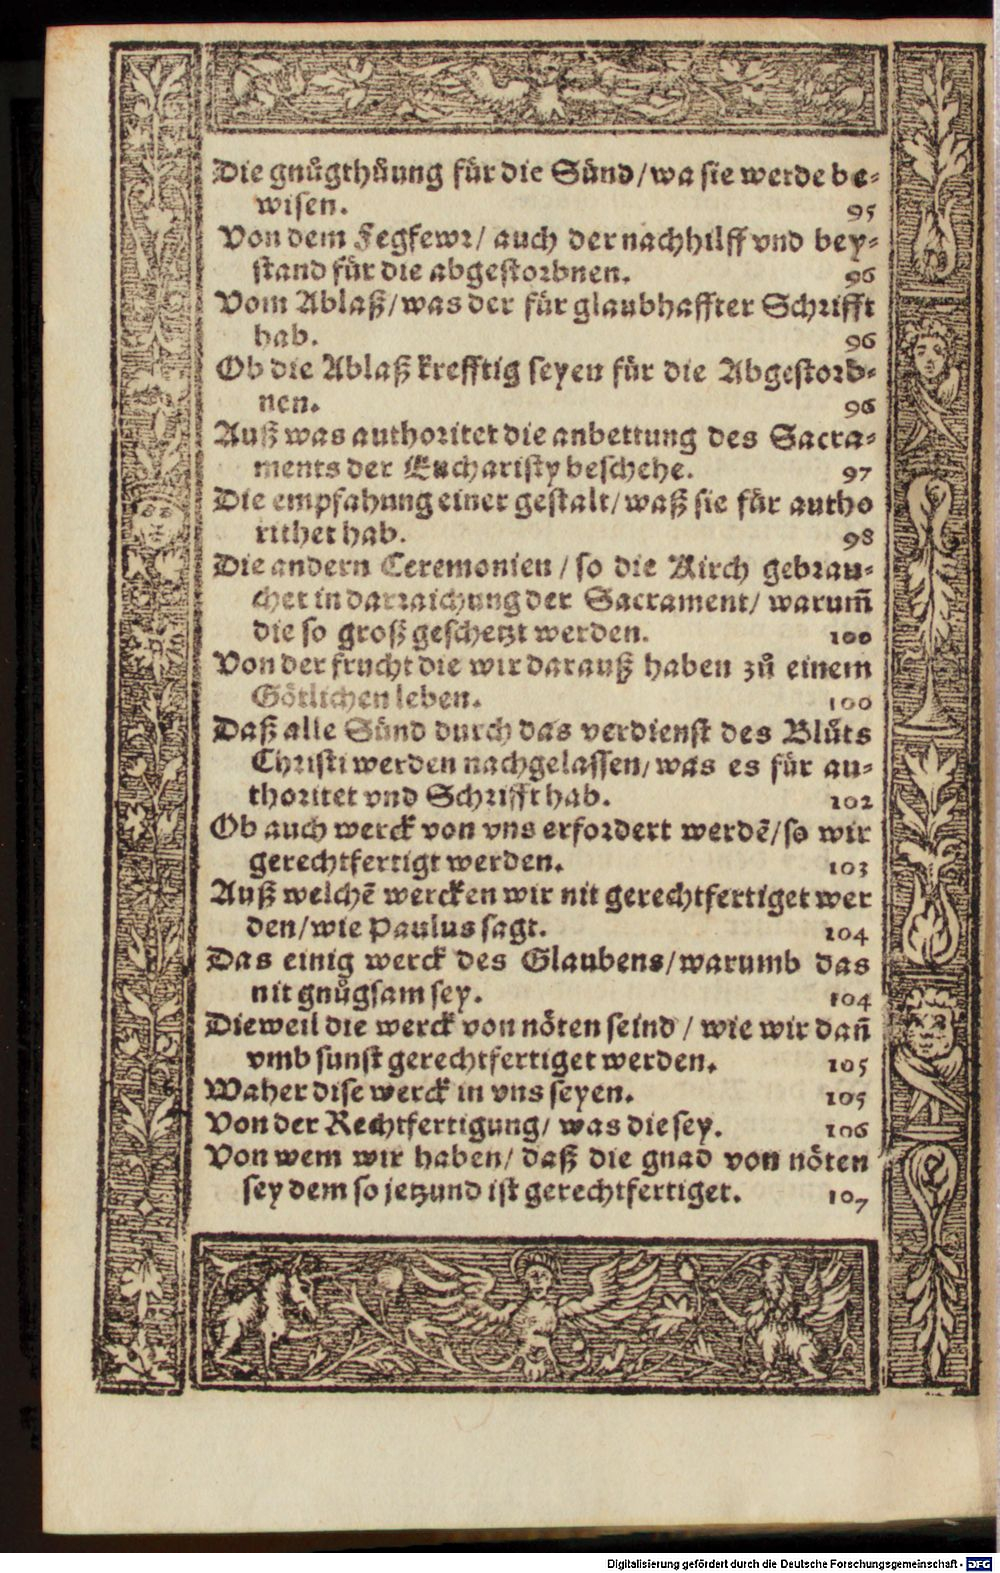 Die gnuͦgthuͦung für die Sünd/wa sie werde be⸗
wisen. 95
Von dem Fegfewr/ auch der nachhilff vnd bey⸗
stand für die abgestorbnen. 96
Vom Ablaß/was der für glaubhaffter Schrifft
hab. 96
Ob die Ablaß krefftig seyen für die Abgestorb⸗
nen. 96
Auß was authoritet die anbettung des Sacra⸗
ments der Eucharisty beschehe. 97
Die empfahung einer gestalt/waß sie für autho
rithet hab. 98
Die andern Ceremonien/so die Kirch gebrau⸗
chet in darraichung der Sacrament/warum̃
die so groß geschetzt werden. 100
Von der frucht die wir darauß haben zuͦ einem
Götlichen leben. 100
Daß alle Sünd durch das verdienst des Bluͦts
Christi werden nachgelassen/was es für au⸗
thoritet vnd Schrifft hab. 102
Ob auch werck von vns erfordert werdẽ/so wir
gerechtfertigt werden. 103
Auß welchẽ wercken wir nit gerechtfertiget wer
den/wie Paulus sagt. 104
Das einig werck des Glaubens/warumb das
nit gnuͦgsam sey. 104
Dieweil die werck von nöten seind/wie wir dañ
vmb sunst gerechtfertiget werden. 105
Waher dise werck in vns seyen. 105
Von der Rechtfertigung/was die sey. 106
Von wem wir haben/daß die gnad von nöten
sey dem so jetzund ist gerechtfertiget. 107
Digitalisierung gefördert durch die Deutsche Forschungsgemeinschaft - DFG